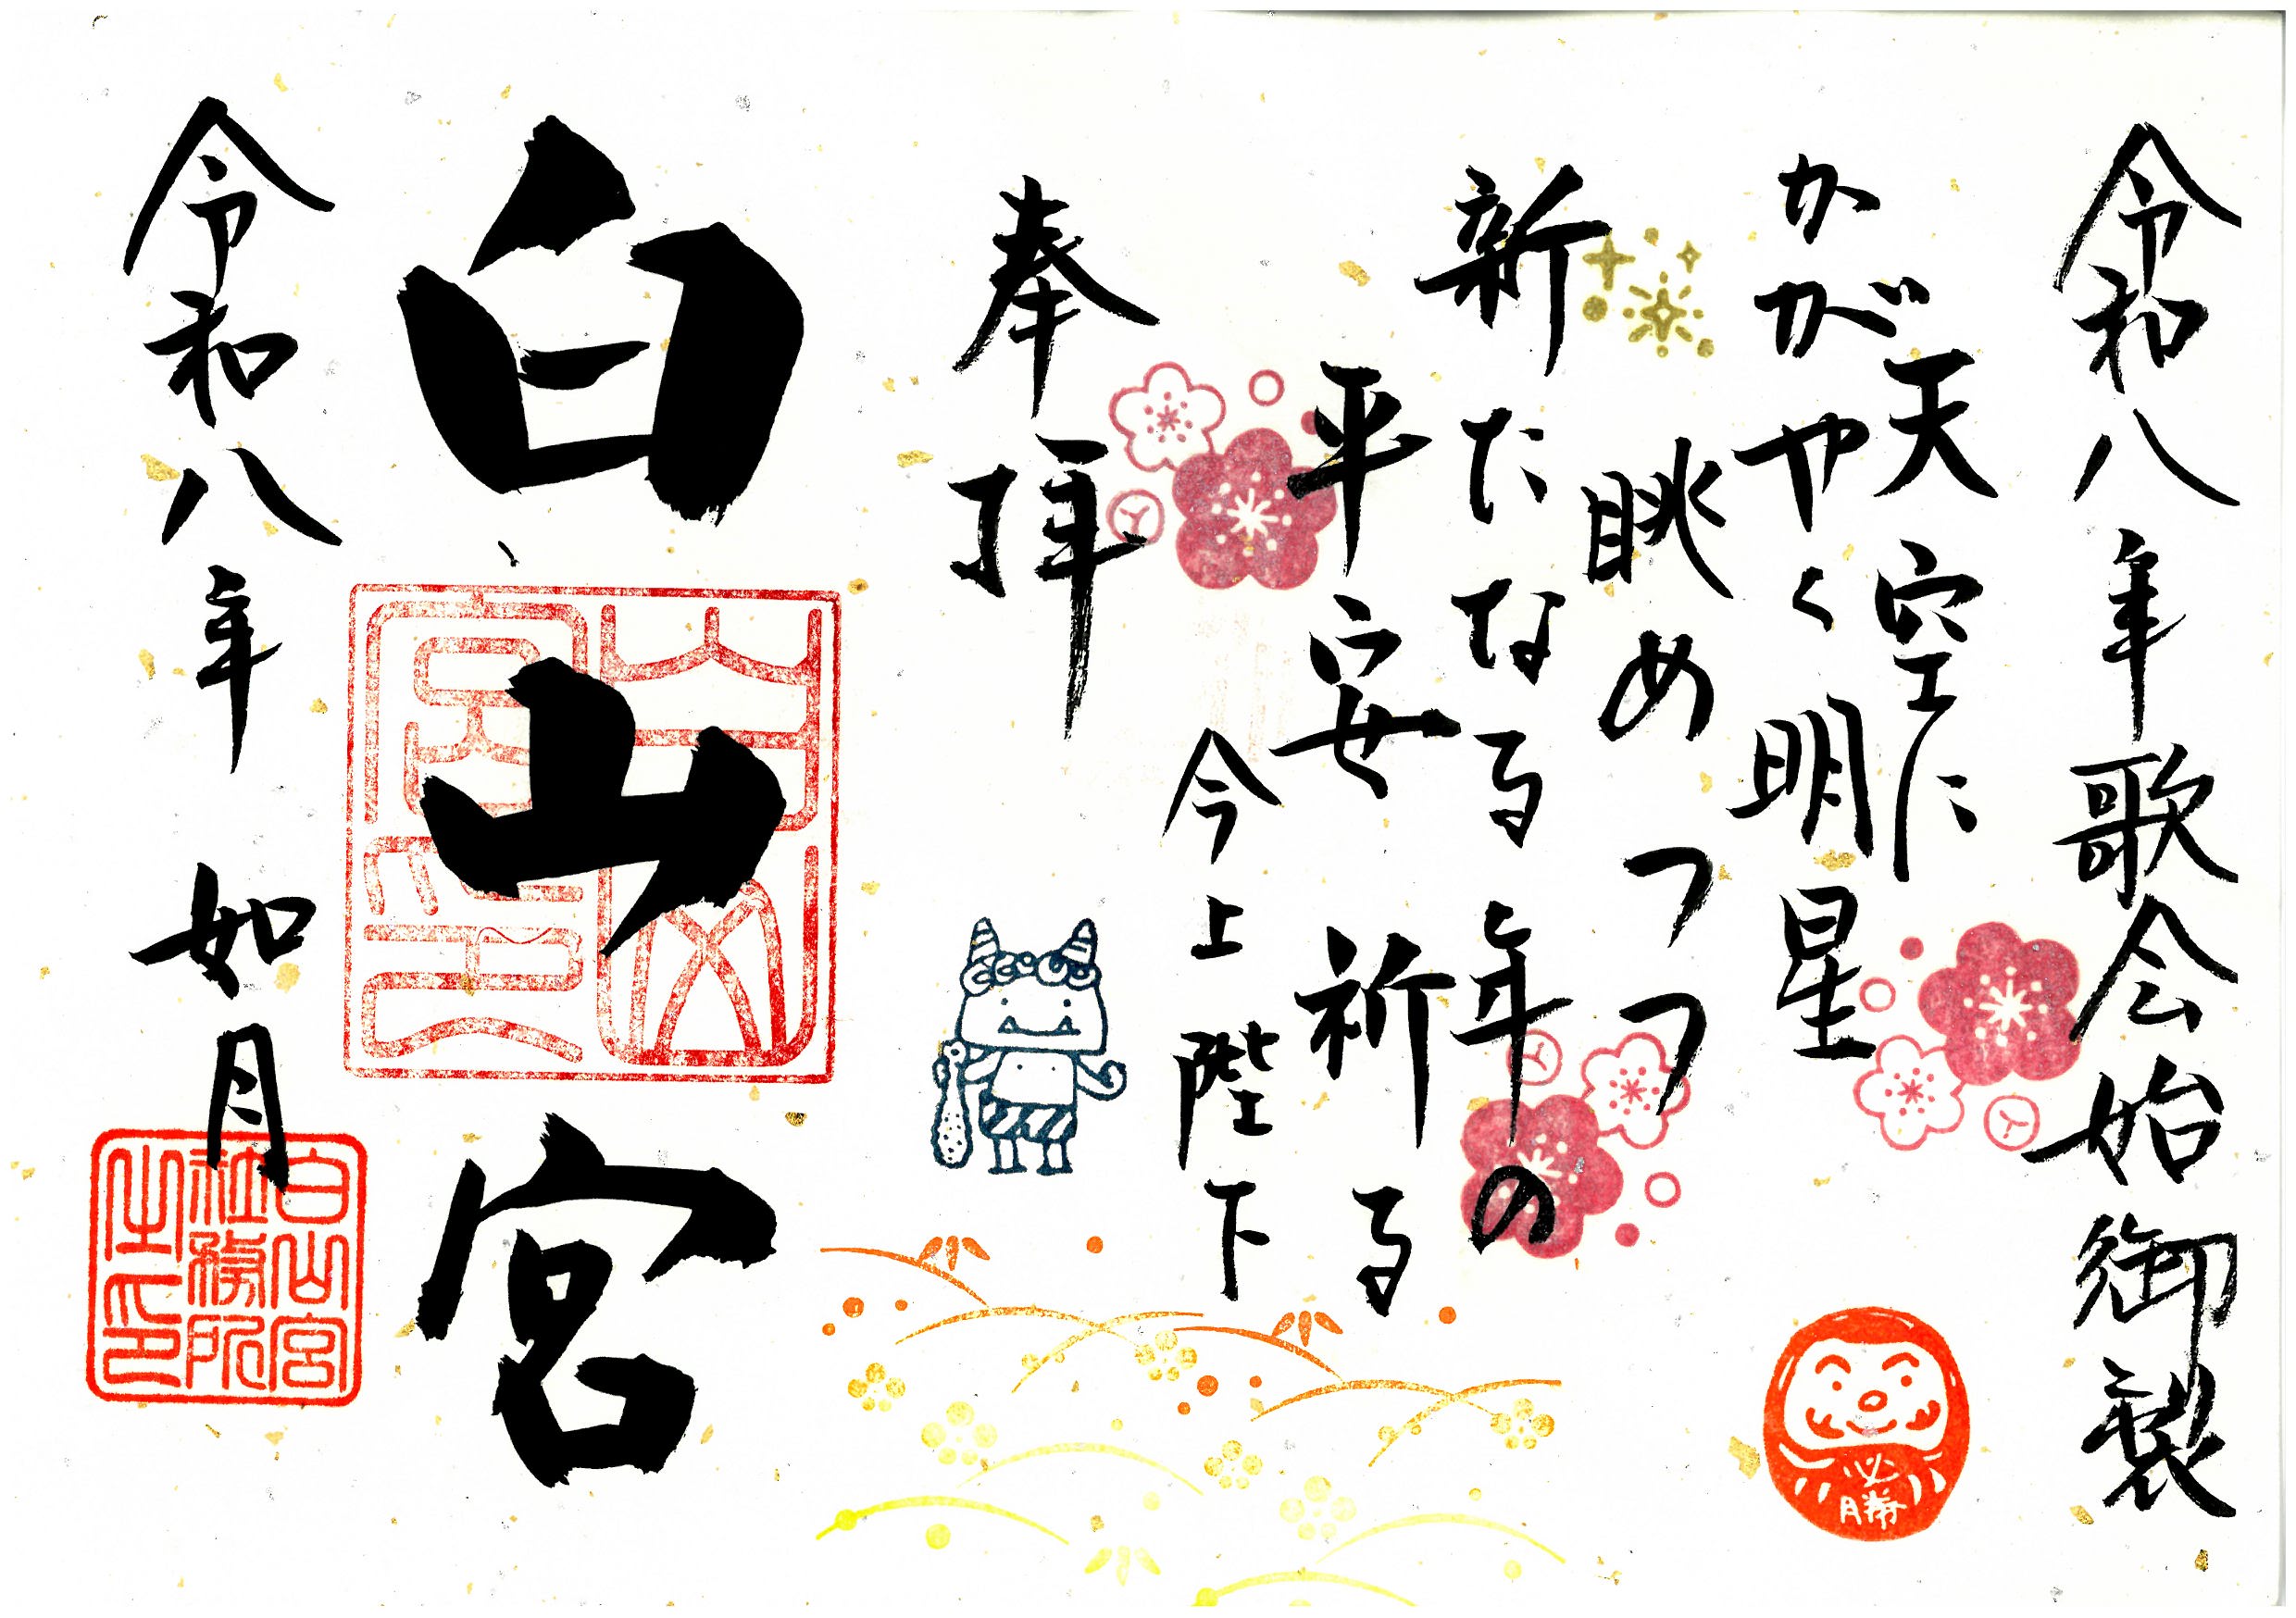 令和八年歌会始御製
天空に
かがやく明星
眺めつつ
新たなる年の
平安祈る
今上陛下
奉拝
白山宮
令和八年如月
白山宮
社務所
之印
必勝